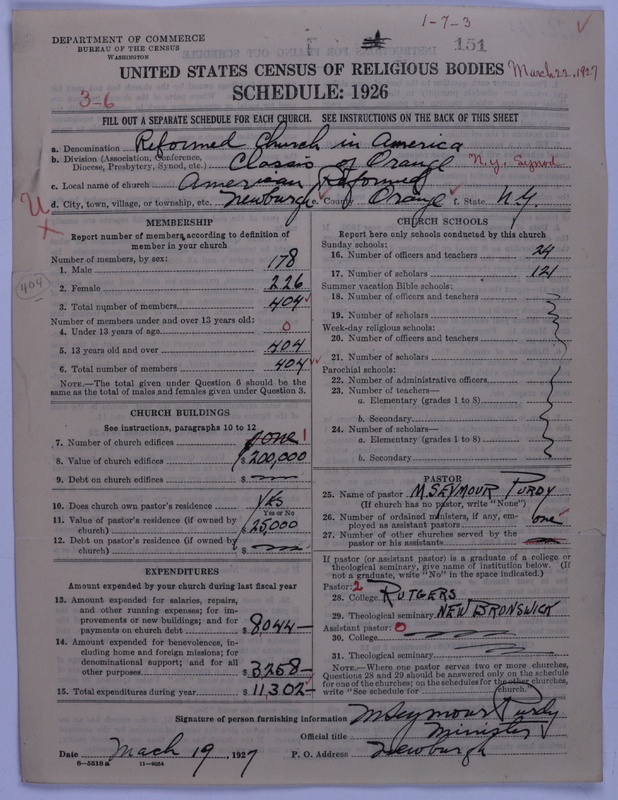 1-7-3
DEPARTMENT OF COMMERCE
BUREAU OF THE CENSUS
WASHINGTON
151
UNITED STATES CENSUS OF RELIGIOUS BODIES
March 22, 1927
SCHEDULE: 1926
3-6
FILL OUT A SEPARATE SCHEDULE FOR EACH CHURCH. SEE INSTRUCTIONS ON THE BACK OF THIS SHEET
a. Denomination Reformed Church in America
b. Division (Association, Conference, Diocese, Presbytery, Synod, etc.) Classis of Orange N.Y. Synod
c. Local name of church American Reformed
d. City, town, village, or township, etc. Newburgh e. County Orange f. State N.Y.
U
X
404
MEMBERSHIP
Report number of members according to definition of
member in your church
Number of members, by sex:
1. Male 178
2. Female 226
3. Total number of members 404
Number of members under and over 13 years old:
4. Under 13 years of age 0
5. 13 years old and over 404
6. Total number of members 404
NOTE.—The total given under Question 6 should be the
same as the total of males and females given under Question 3.
CHURCH BUILDINGS
See instructions, paragraphs 10 to 12
7. Number of church edifices one 1
8. Value of church edifices $200,000
9. Debt on church edifices $
10. Does church own pastor's residence Yes
Yes or No
11. Value of pastor's residence (if owned by
church) $25,000
12. Debt on pastor's residence (if owned by
church) $
EXPENDITURES
Amount expended by your church during last fiscal year
13. Amount expended for salaries, repairs,
and other running expenses; for im-
provements or new buildings; and for
payments on church debt $8,044—
14. Amount expended for benevolences, in-
cluding home and foreign missions; for
denominational support; and for all
other purposes $3258—
15. Total expenditures during year $11,302—
CHURCH SCHOOLS
Report here only schools conducted by this church
Sunday schools:
16. Number of officers and teachers 24
17. Number of scholars 121
Summer vacation Bible schools:
18. Number of officers and teachers
19. Number of scholars
Week-day religious schools:
20. Number of officers and teachers
21. Number of scholars
Parochial schools:
22. Number of administrative officers
23. Number of teachers—
a. Elementary (grades 1 to 8)
b. Secondary
24. Number of scholars—
a. Elementary (grades 1 to 8)
b. Secondary
PASTOR
25. Name of pastor M. SEYMOUR PURDY
(If church has no pastor, write "None")
26. Number of ordained ministers, if any, em-
ployed as assistant pastors one
27. Number of other churches served by the
pastor or his assistants
If pastor (or assistant pastor) is a graduate of a college or
theological seminary, give name of institution below. (If
not a graduate, write "No" in the space indicated.)
Pastor: 2
28. College RUTGERS
29. Theological seminary NEW BRUNSWICK
Assistant pastor: 0
30. College
31. Theological seminary
NOTE.—Where one pastor serves two or more churches,
Questions 28 and 29 should be answered only on the schedule
for one of the churches; on the schedules for the other churches,
write "See schedule for church."
Signature of person furnishing information M Seymour Purdy
Official title Minister
Date Mach 19, 1927 P. O. Address Newburgh
6-5518a 11-9054